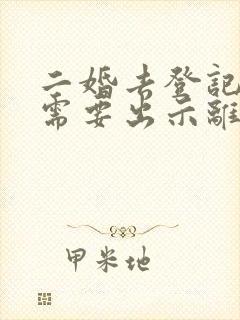 二婚去登記
需要出示離
甲米地